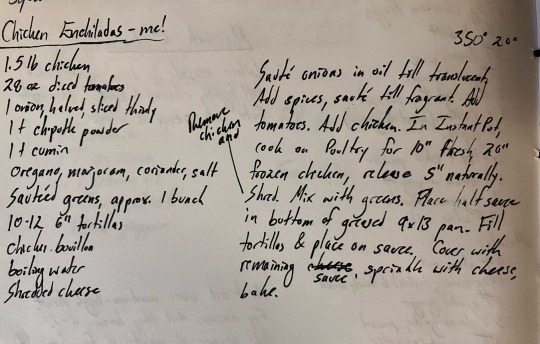 Chicken Enchiladas - me!
350° 20"
1.5 lb chicken
28 oz diced tomatoes
1 onion, halved, sliced thinly
1 t chipotle powder
1 t cumin
Oregano, marjoram, coriander, salt
Sautéed greens, approx. 1 bunch
10-12 6" tortillas
Chicken bouillon
boiling water
Shredded cheese
Sauté onions in oil till translucent.
Add spices, sauté till fragrant. Add
tomatoes. Add chicken. In InstantPot,
cook on Poultry for 10" fresh, 20"
frozen chicken, release 5" naturally.
Remove
chicken
and
Shred. Mix with greens. Place half sauce
in bottom of greased 9x13 pan. Fill
tortillas & place on sauce. Cover with
remaining cheese sauce, sprinkle with cheese,
bake.